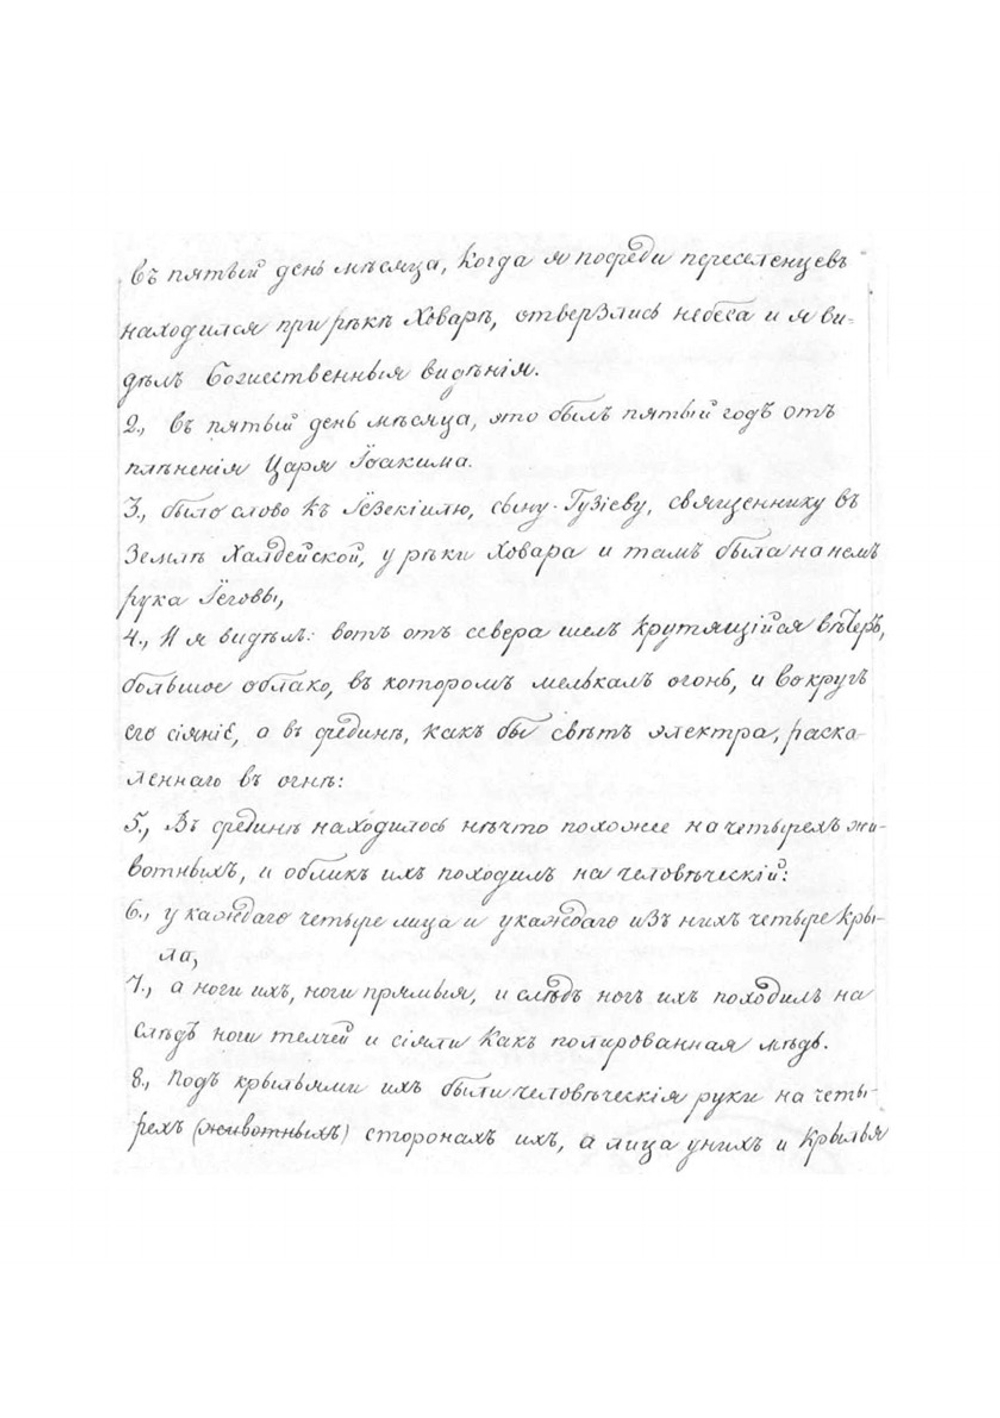 въ пятый день мѣсяца, когда я посреди переселенцевъ
находился при рѣкѣ Ховарѣ, отверзлись небеса и я ви-
дѣлъ Божественныя видѣнія.
2., въ пятый день мѣсяца, это былъ пятый годъ отъ
плѣненія Царя Іоакима.
3., было слово къ Іезекіилю, сыну Бузіеву, священнику въ
Землѣ Халдейской, у рѣки Ховара и тамъ была на немъ
рука Іеговы,
4., И я видѣлъ: вотъ отъ севера шелъ крутящійся вѣтеръ,
большое облако, въ которомъ мелькалъ огонь, и вокругъ
его сіяніе, а въ срединѣ, какъ бы свѣтъ электра, раска-
леннаго въ огнѣ:
5., Въ срединѣ находилось нѣчто похожее на четырехъ жи-
вотныхъ, и обликъ ихъ походилъ на человѣческій:
6., у каждаго четыре лица и у каждаго изъ нихъ четыре кры-
ла,
7., а ноги ихъ, ноги прямыя, и слѣдъ ногъ ихъ походилъ на
слѣдъ ноги телчей и сіяли какъ полированная мѣдь.
8., Подъ крыльями ихъ были человѣческія руки на четы-
рехъ (животныхъ) сторонахъ ихъ, а лица у нихъ и крылья